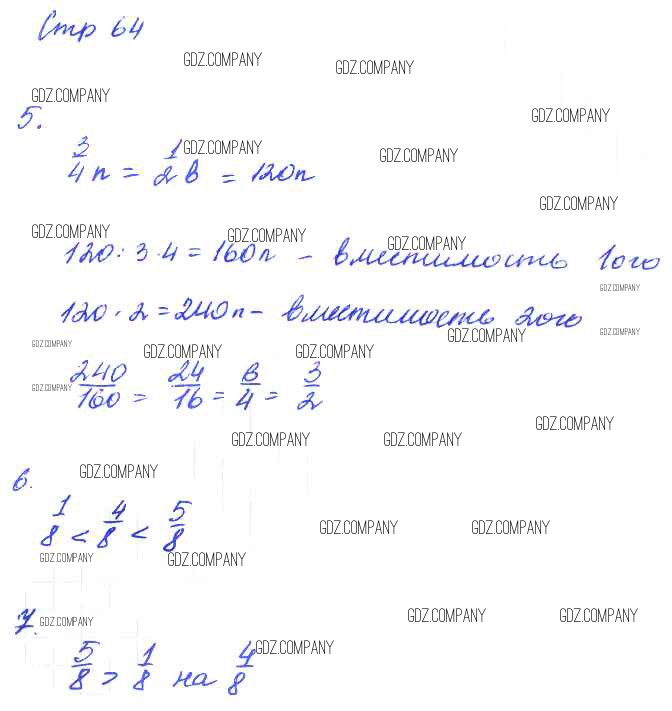 Стр 64
GDZ.COMPANY GDZ.COMPANY
GDZ.COMPANY GDZ.COMPANY
5.
GDZ.COMPANY GDZ.COMPANY
3/4 п = 1/2 в = 120п
GDZ.COMPANY
GDZ.COMPANY GDZ.COMPANY GDZ.COMPANY
120 : 3 · 4 = 160п – вместимость 1ого
GDZ.COMPANY
120 · 2 = 240п – вместимость 2ого
GDZ.COMPANY GDZ.COMPANY
GDZ.COMPANY GDZ.COMPANY GDZ.COMPANY
GDZ.COMPANY
240/160 = 24/16 = 6/4 = 3/2
GDZ.COMPANY
GDZ.COMPANY GDZ.COMPANY
6. GDZ.COMPANY
1/8 < 4/8 < 5/8
GDZ.COMPANY GDZ.COMPANY
GDZ.COMPANY GDZ.COMPANY
7. GDZ.COMPANY GDZ.COMPANY GDZ.COMPANY
GDZ.COMPANY
5/8 > 1/8 на 4/8